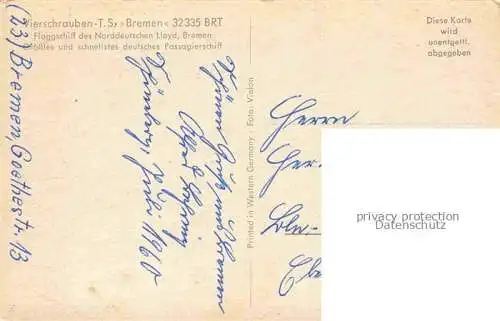 Vierschrauben-T.S. »Bremen« 32335 BRT
Flaggschiff des Norddeutschen Lloyd, Bremen
Größtes und schnellstes deutsches Passagierschiff
Diese Karte
wird
unentgeltl.
abgegeben
(23) Bremen, Goethestr. 13
Schönen Gruß aus Bremen
Alfred
Juli 1960
Printed in Western Germany - Foto: Vialon
Herrn
privacy protection
www.oldthing.com